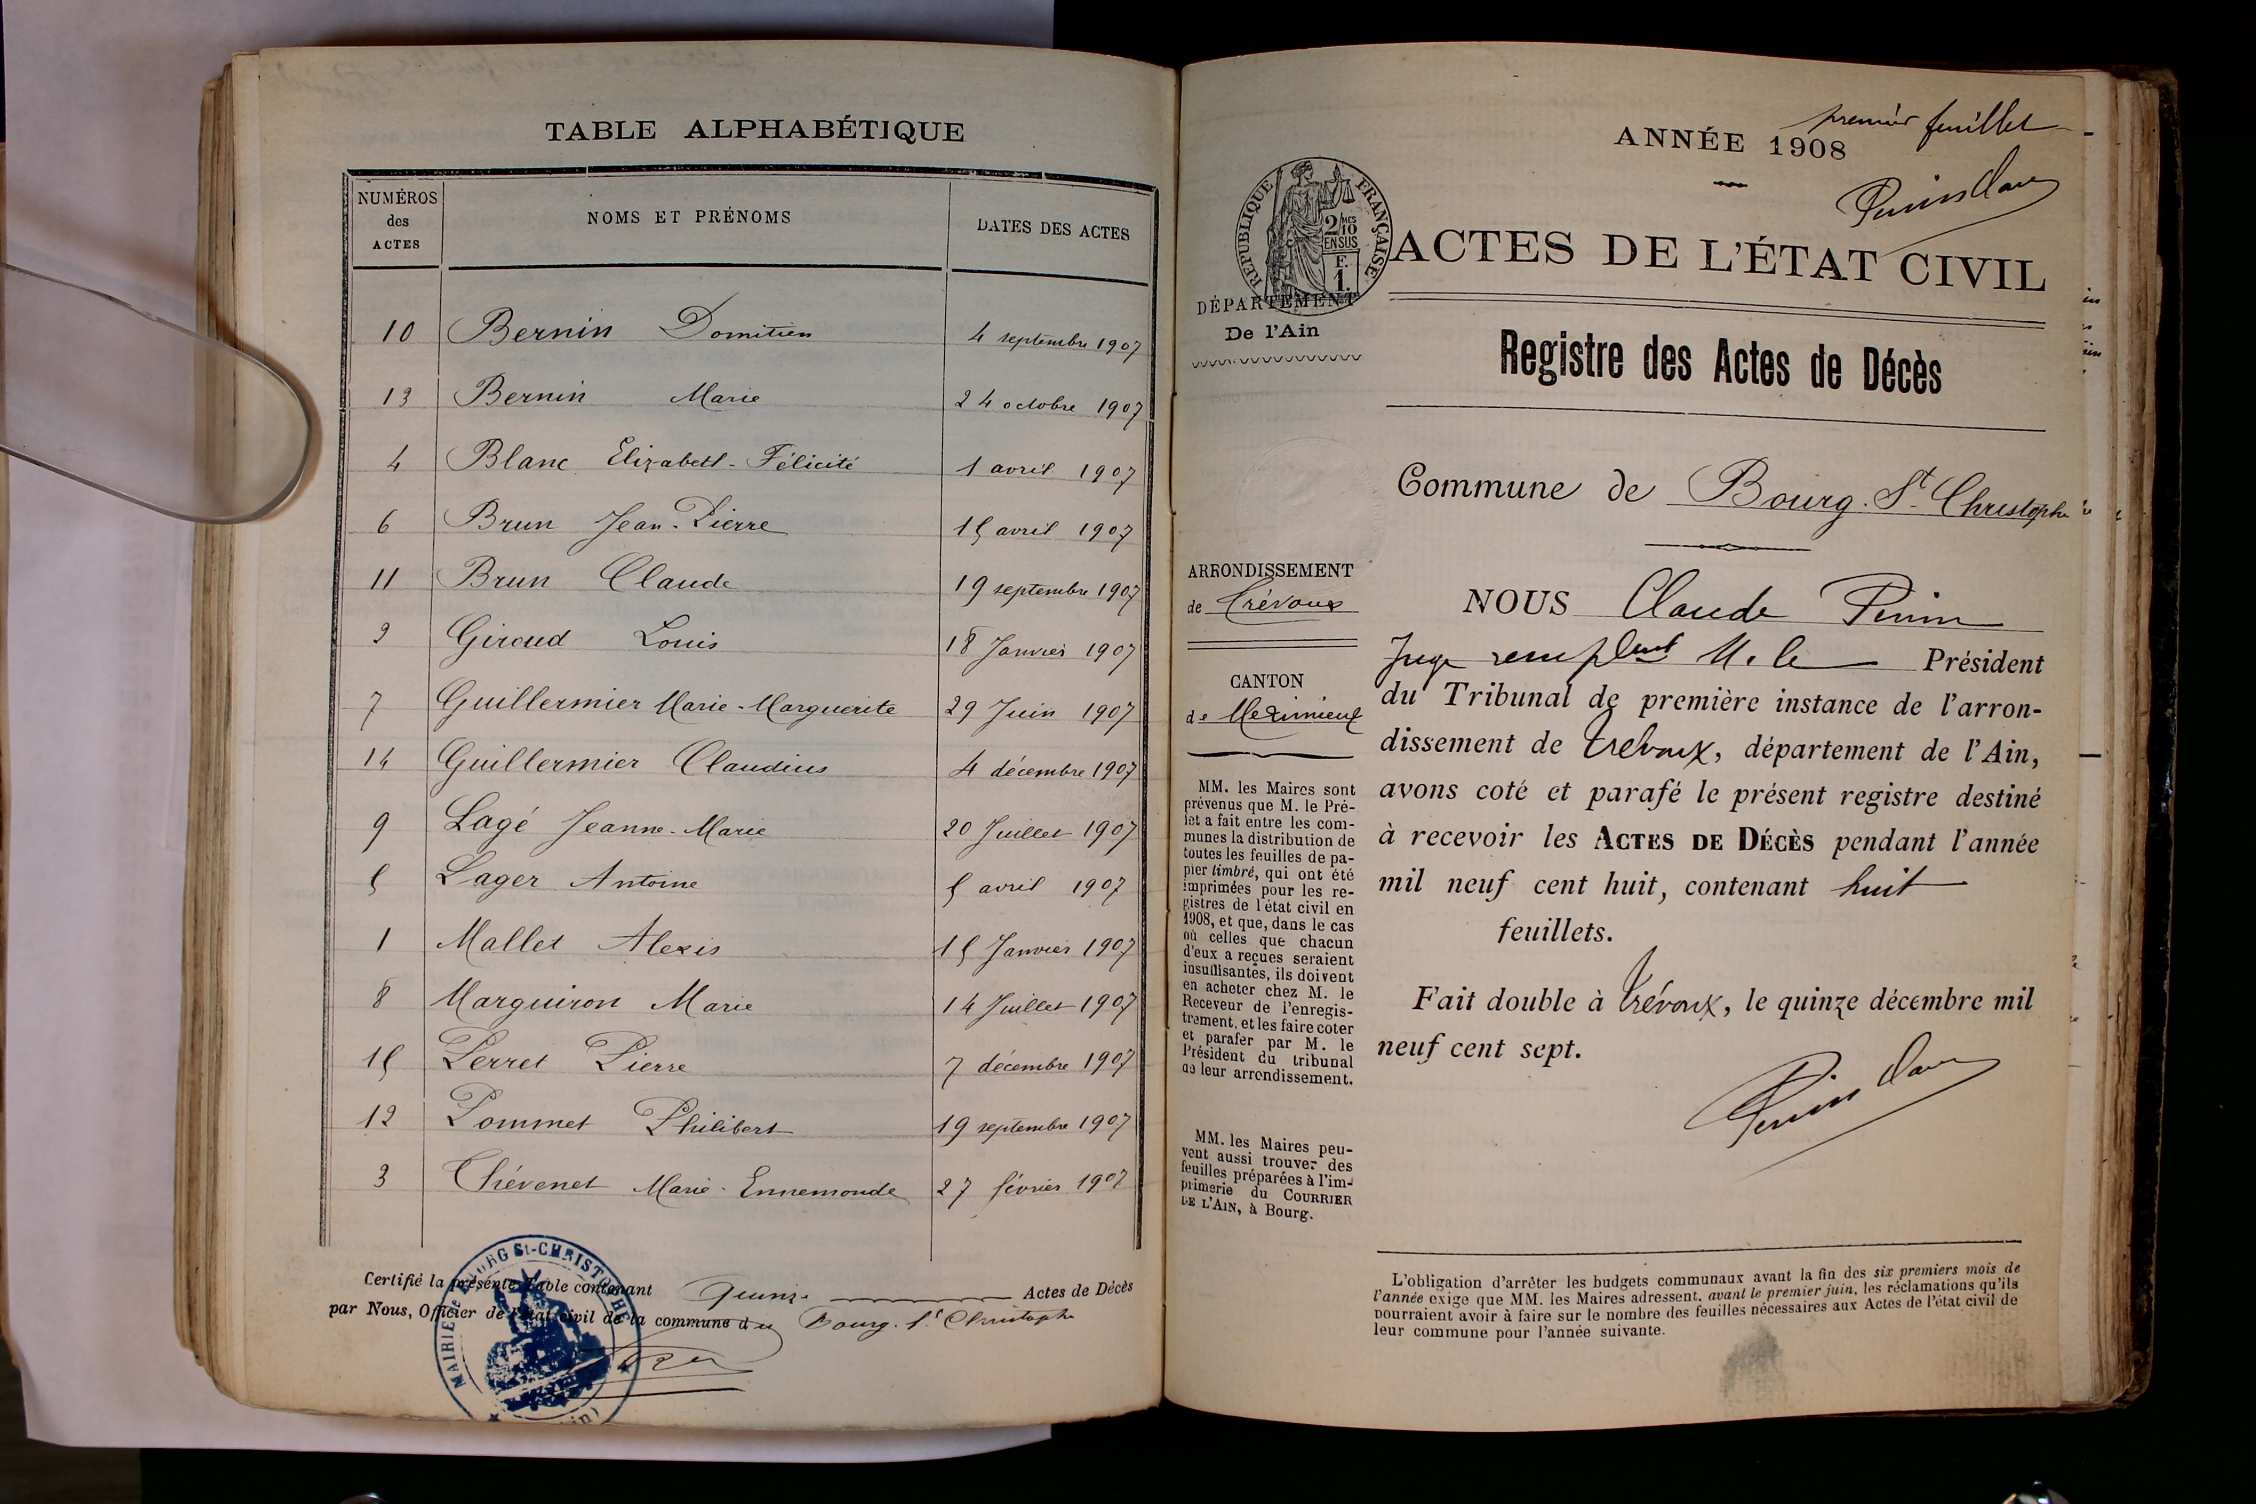 TABLE ALPHABÉTIQUE
NUMÉROS des ACTES
NOMS ET PRÉNOMS
DATES DES ACTES
10 Bernin Domitien 4 septembre 1907
13 Bernin Marie 24 octobre 1907
4 Blanc Elizabeth-Félicité 1 avril 1907
6 Brun Jean-Pierre 15 avril 1907
11 Brun Claude 19 septembre 1907
2 Giroud Louis 18 Janvier 1907
7 Guillermier Marie-Marguerite 29 Juin 1907
14 Guillermier Claudius 4 décembre 1907
9 Lagé Jeanne-Marie 20 Juillet 1907
5 Lager Antoine 5 avril 1907
1 Mallet Alexis 15 Janvier 1907
8 Marguiron Marie 14 Juillet 1907
15 Perret Pierre 7 décembre 1907
12 Pommet Philibert 19 septembre 1907
3 Thévenet Marie-Ennemonde 27 février 1907
Certifié la présente Table contenant quinze Actes de Décès
par Nous, Officier de l'état civil de la commune de Bourg-St Christophe
MAIRIE de BOURG St-CHRISTOPHE
(Ain)
premier feuillet
ANNÉE 1908
RÉPUBLIQUE FRANÇAISE
2/10 MES
EN SUS
F.
1.
ACTES DE L'ÉTAT CIVIL
DÉPARTEMENT
De l'Ain
Registre des Actes de Décès
Commune de Bourg-St-Christophe
ARRONDISSEMENT
de Trévoux
CANTON
de Meximieux
MM. les Maires sont
prévenus que M. le Pré-
fet a fait entre les com-
munes la distribution de
toutes les feuilles de pa-
pier timbré, qui ont été
imprimées pour les re-
gistres de l'état civil en
1908, et que, dans le cas
où celles que chacun
d'eux a reçues seraient
insuffisantes, ils doivent
en acheter chez M. le
Receveur de l'enregis-
trement, et les faire coter
et parafer par M. le
Président du tribunal
de leur arrondissement.
MM. les Maires peu-
vent aussi trouver des
feuilles préparées à l'im-
primerie du COURRIER
DE L'AIN, à Bourg.
NOUS Claude Perrin
Juge remplçant M. le Président
du Tribunal de première instance de l'arron-
dissement de Trévoux, département de l'Ain,
avons coté et parafé le présent registre destiné
à recevoir les ACTES DE DÉCÈS pendant l'année
mil neuf cent huit, contenant huit
feuillets.
Fait double à Trévoux, le quinze décembre mil
neuf cent sept.
L'obligation d'arrêter les budgets communaux avant la fin des six premiers mois de
l'année exige que MM. les Maires adressent, avant le premier juin, les réclamations qu'ils
pourraient avoir à faire sur le nombre des feuilles nécessaires aux Actes de l'état civil de
leur commune pour l'année suivante.